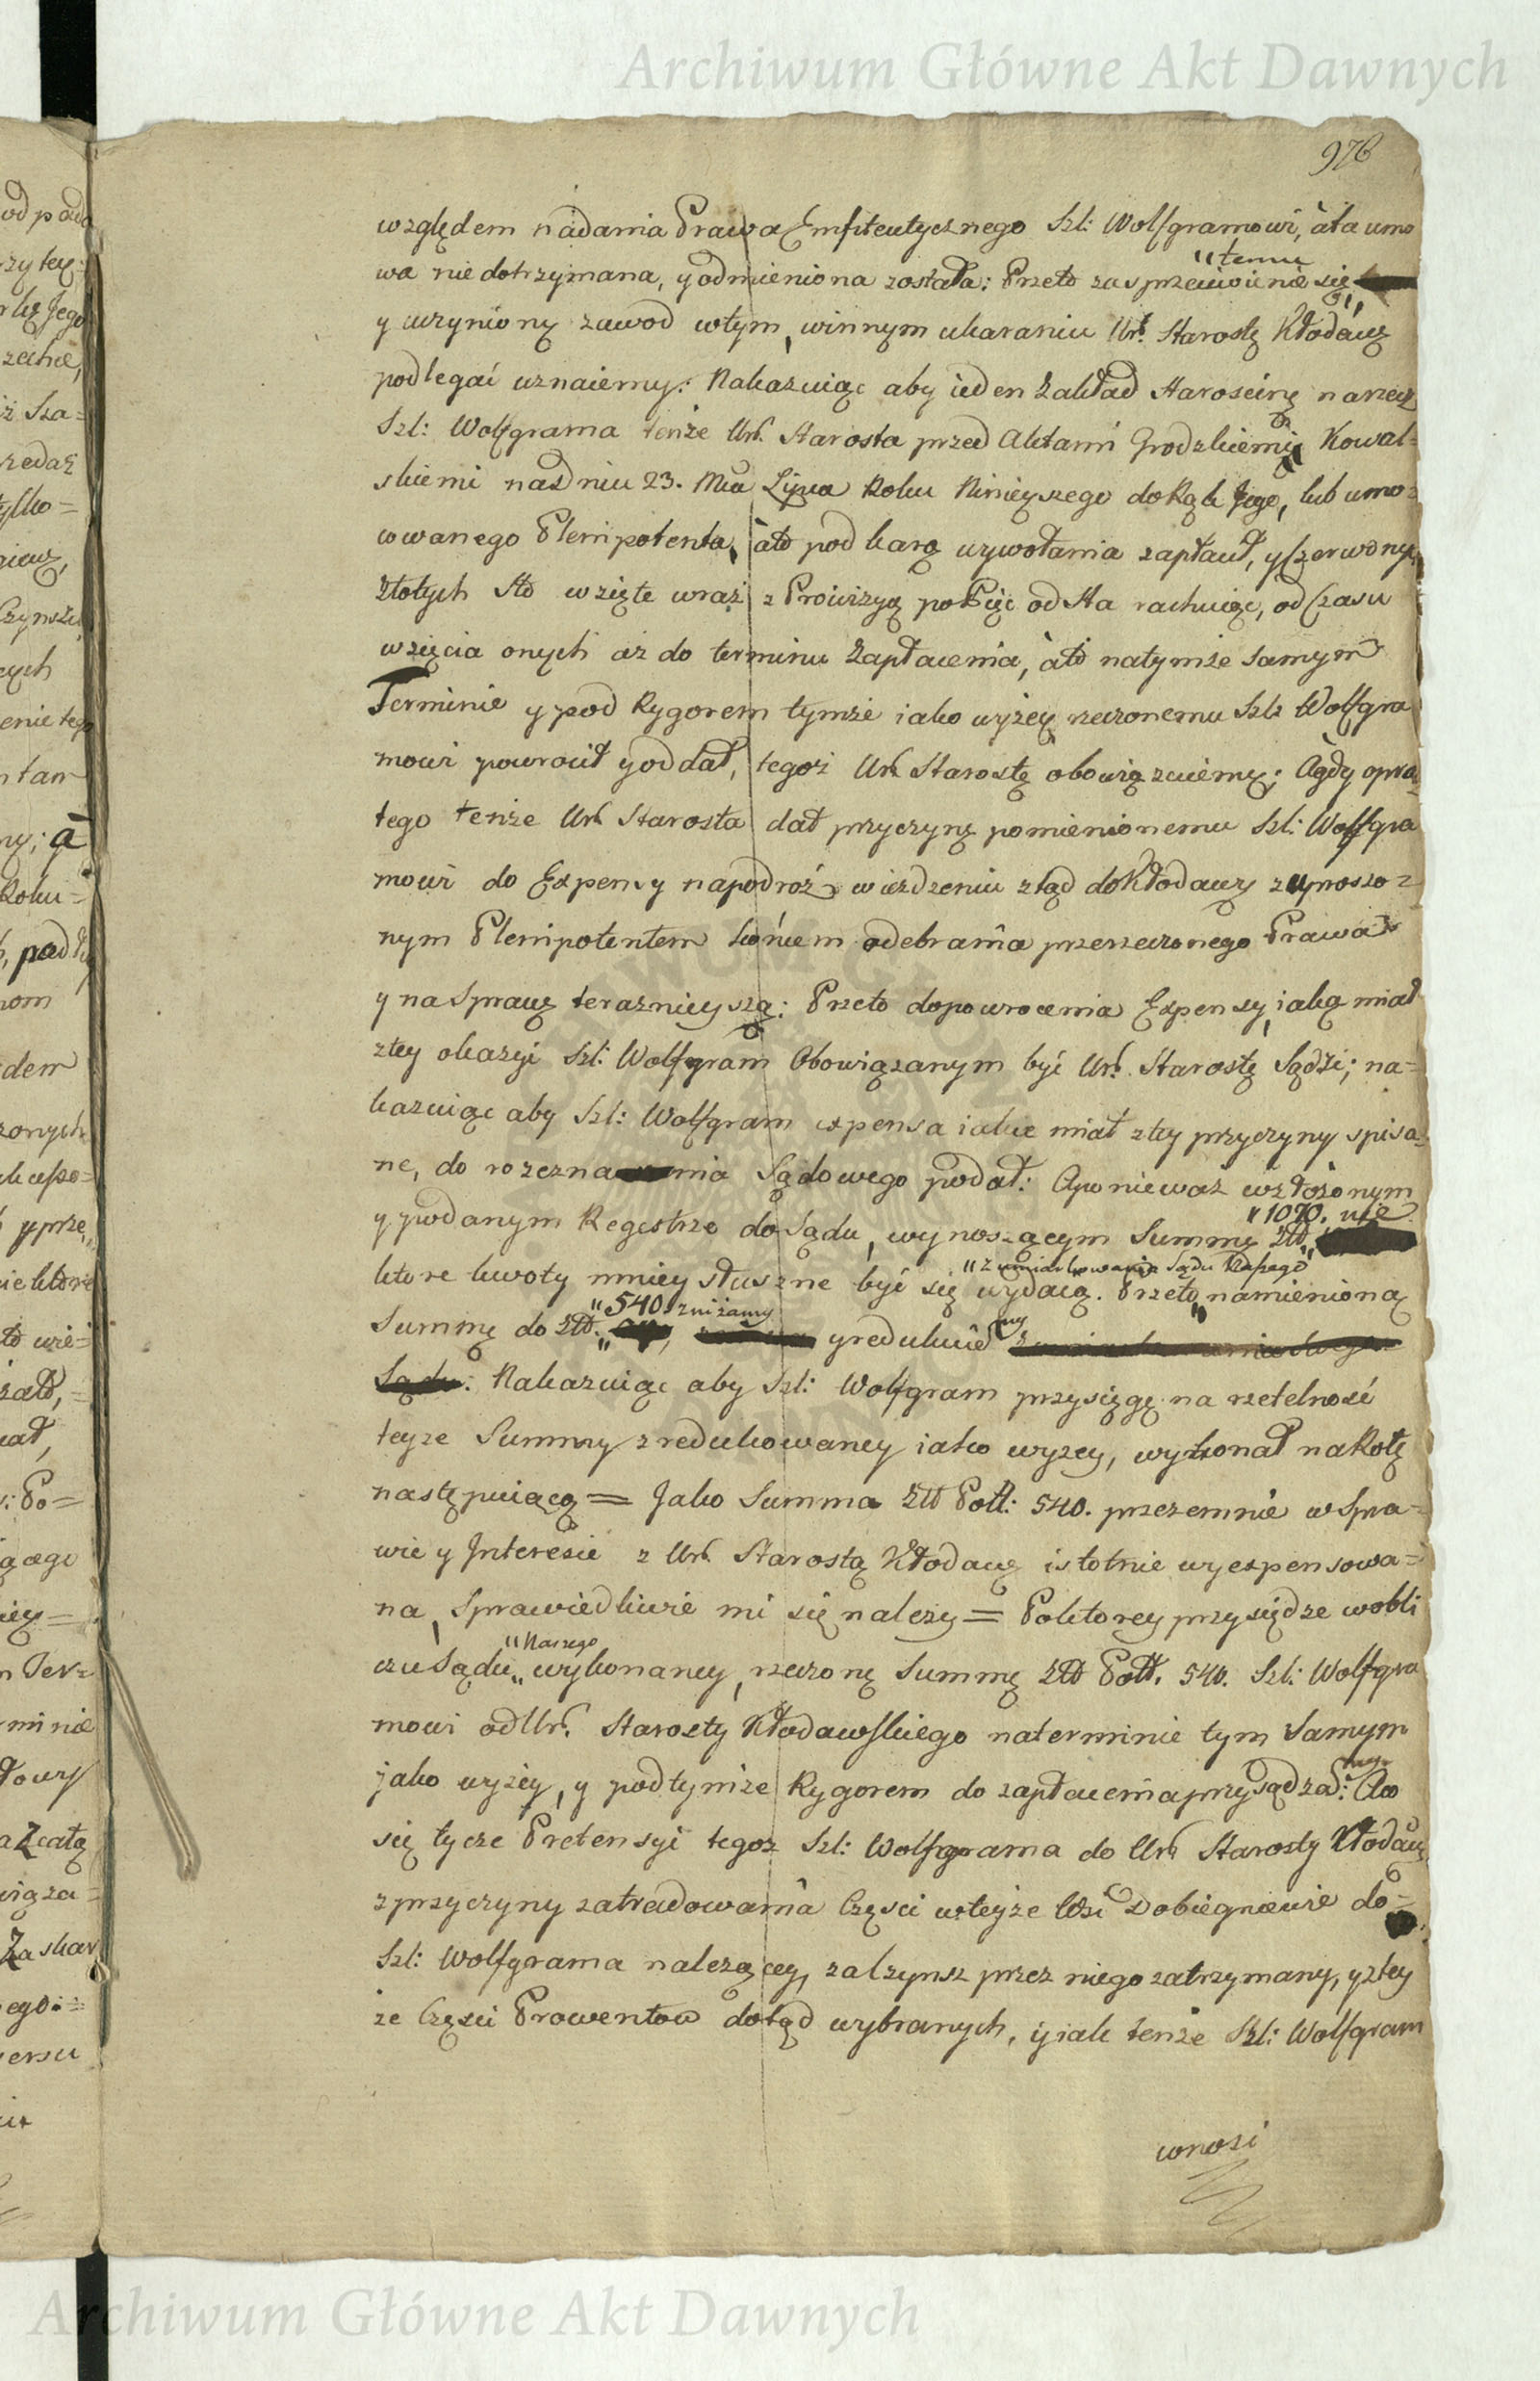 Archiwum Główne Akt Dawnych
976
względem nadania Prawa Emfiteutycznego Szl: Wolfgramowi, àta umo
wa niedotrzymana, y odmieniona została: Przeto za sprzeciwienie się "temu
y uczyniony zawod wtym, winnym ukaraniu Ur: Starostę Kłodawę
podlegać uznaiemy: Nakazuiąc aby ieden Zakład Starościnę narzecz
Szl: Wolfgrama tenże Ur. Starosta przed Aktami Grodzkiemi Kowal=
skiemi nadniu 23. Mca Lipca Roku Ninieyszego do Rąk Jego, lub umo=
cowanego Plenipotenta, àto pod karą wywołania zapłacił, y Czerwonych
Złotych Sto wzięte wraz z Prowizyą po Pięć od Sta rachuiąc, od Czasu
wzięcia onych aż do terminu Zapłacenia, àto natymże samym
Terminie y pod Rygorem tymże iako wyżey rzeczonemu Szl: Wolfgra
mowi powrocił y oddał, tegoż Ur. Starostę obowiązuiemy; Agdy opro=
tego tenże Ur. Starosta dał przyczynę pomienionemu Szl: Wolfgra
mowi do Expensy napodroż wieżdzeniu ztąd do Kłodawy z uproszo=
nym Plenipotentem końcem odebrania przerzeczonego Prawa
y na Sprawę teraznieyszą: Przeto dopowrocenia Expensy, iaką miał
ztey okazyi Szl: Wolfgram Obowiązanym być Ur. Starostę Sądzi; na=
kazuiąc aby Szl: Wolfgram expensa iakie miał ztey przyczyny spisa=
ne, do rozezna nia Sądowego podał: Aponieważ wzłożonym
y podanym Regestrze do Sądu, wynoszącym Summę Złł "1070. nie
ktore kwoty mniey słuszne być się wydaią. Przeto "z umiarkowania Sądu Naszego namienioną
Summę do Złł. "540. zniżamy y redukuie my
Sądu: Nakazuiąc aby Szl: Wolfgram przysięgę na rzetelność
teyze Summy zredukowaney iako wyzey, wykonał na Rotę
następuiącą = Jako Summa Złł Poll: 540. przezemnie w Spra=
wie y Interesie z Ur. Starostą Kłodawę istotnie wyexpensowa=
na, Sprawiedliwie mi się nalezy = Poktorey przysiędze wobli
czu Sądu "Naszego wykonaney, rzeczonę Summę Złł Poll. 540. Szl: Wolfgra
mowi od Ur. Starosty Kłodawskiego naterminie tym Samym
jako wyżey, y podtymże Rygorem do zapłacenia przysądza my: Aco
się tycze Pretensyi tegoz Szl: Wolfgrama do Ur. Starosty Kłodawę
zprzyczyny zatradowania Części wteyże Wsi Dobiegniewie do=
Szl: Wolfgrama nalezącey, za Czynsz przez niego zatrzymany, y ztey
że Części Prowentow dotąd wybranych, y iak tenże Szl: Wolfgram
wnosi
Archiwum Główne Akt Dawnych